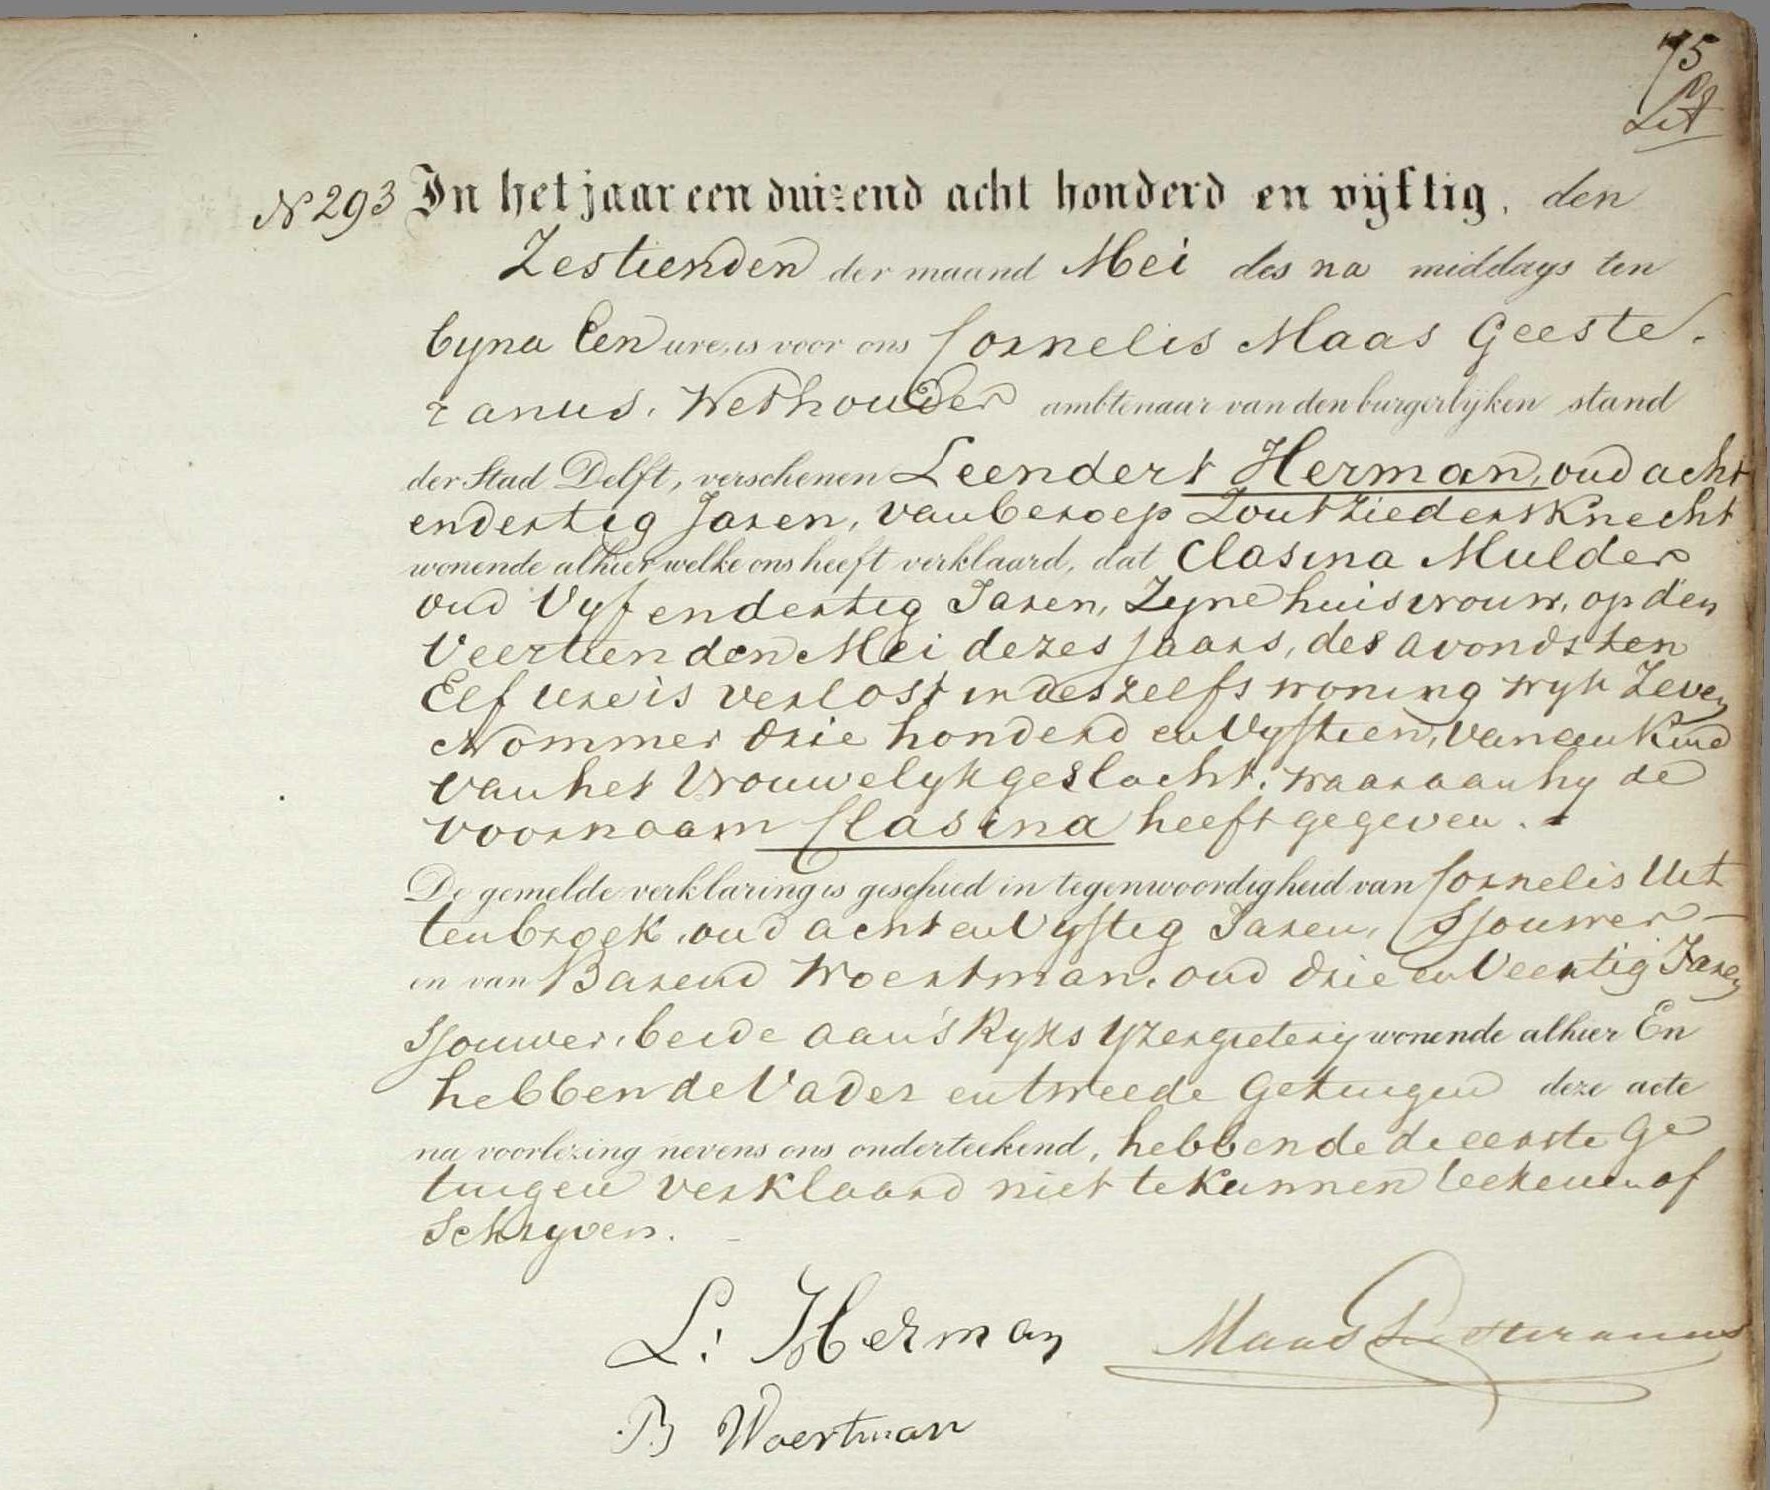 75
N 293 In het jaar een duizend acht honderd en vijftig, den
Zestienden der maand Mei des na middags ten
byna Een ure, is voor ons Cornelis Maas Geeste-
ranus. Wethouder ambtenaar van den burgerlijken stand
der Stad Delft, verschenen Leendert Herman, oud acht
endertig Jaren, van beroep Zoutziedersknecht
wonende alhier welke ons heeft verklaard, dat Clasina Mulder
oud Vyf endertig Jaren, Zyne huisvrouw, op den
Veertienden Mei dezes jaars, des avonds ten
Elf ure is verlost in deszelfs woning wyk Zeven
Nommer drie honderd en Vyftien, van een Kind
van het Vrouwelyk geslacht, waaraan hy de
voornaam Clasina heeft gegeven.
De gemelde verklaring is geschied in tegenwoordigheid van Cornelis Uit
tenbroek, oud acht en Vyftig Jaren, Sjouwer
en van Barend Woertman, oud drie en Veertig Jaren
Sjouwer, beide aan 's Ryks Yzergietery wonende alhier En
hebben de Vader en tweede Getuigen deze acte
na voorlezing nevens ons onderteekend, hebbende de eerste Ge
tuigen verklaard niet te kunnen teekenen of
Schryven.
L. Herman Maas Geesteranus
B Woertman